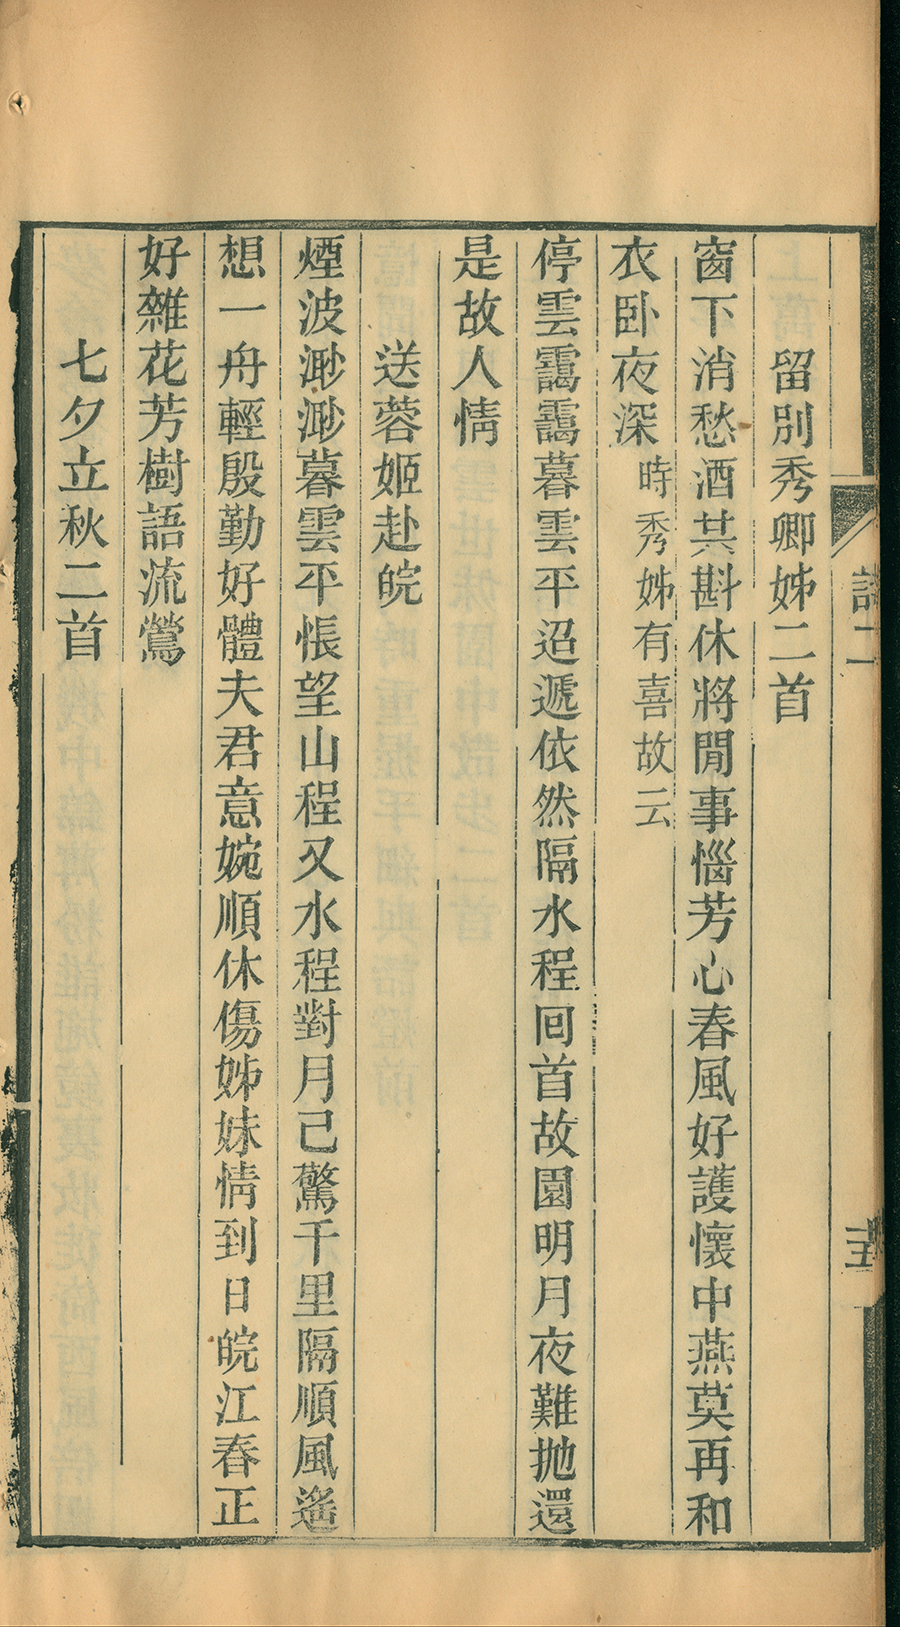 詩二
十五
留別秀卿姊二首
窗下消愁酒共斟休將閒事惱芳心春風好護懷中燕莫再和
衣卧夜深時秀姊有喜故云
停雲靄靄暮雲平迢遞依然隔水程回首故園明月夜難抛還
是故人情
送蓉姬赴皖
煙波渺渺暮雲平悵望山程又水程對月已驚千里隔順風遙
想一舟輕殷勤好體夫君意婉順休傷姊妹情到日皖江春正
好雜花芳樹語流鶯
七夕立秋二首